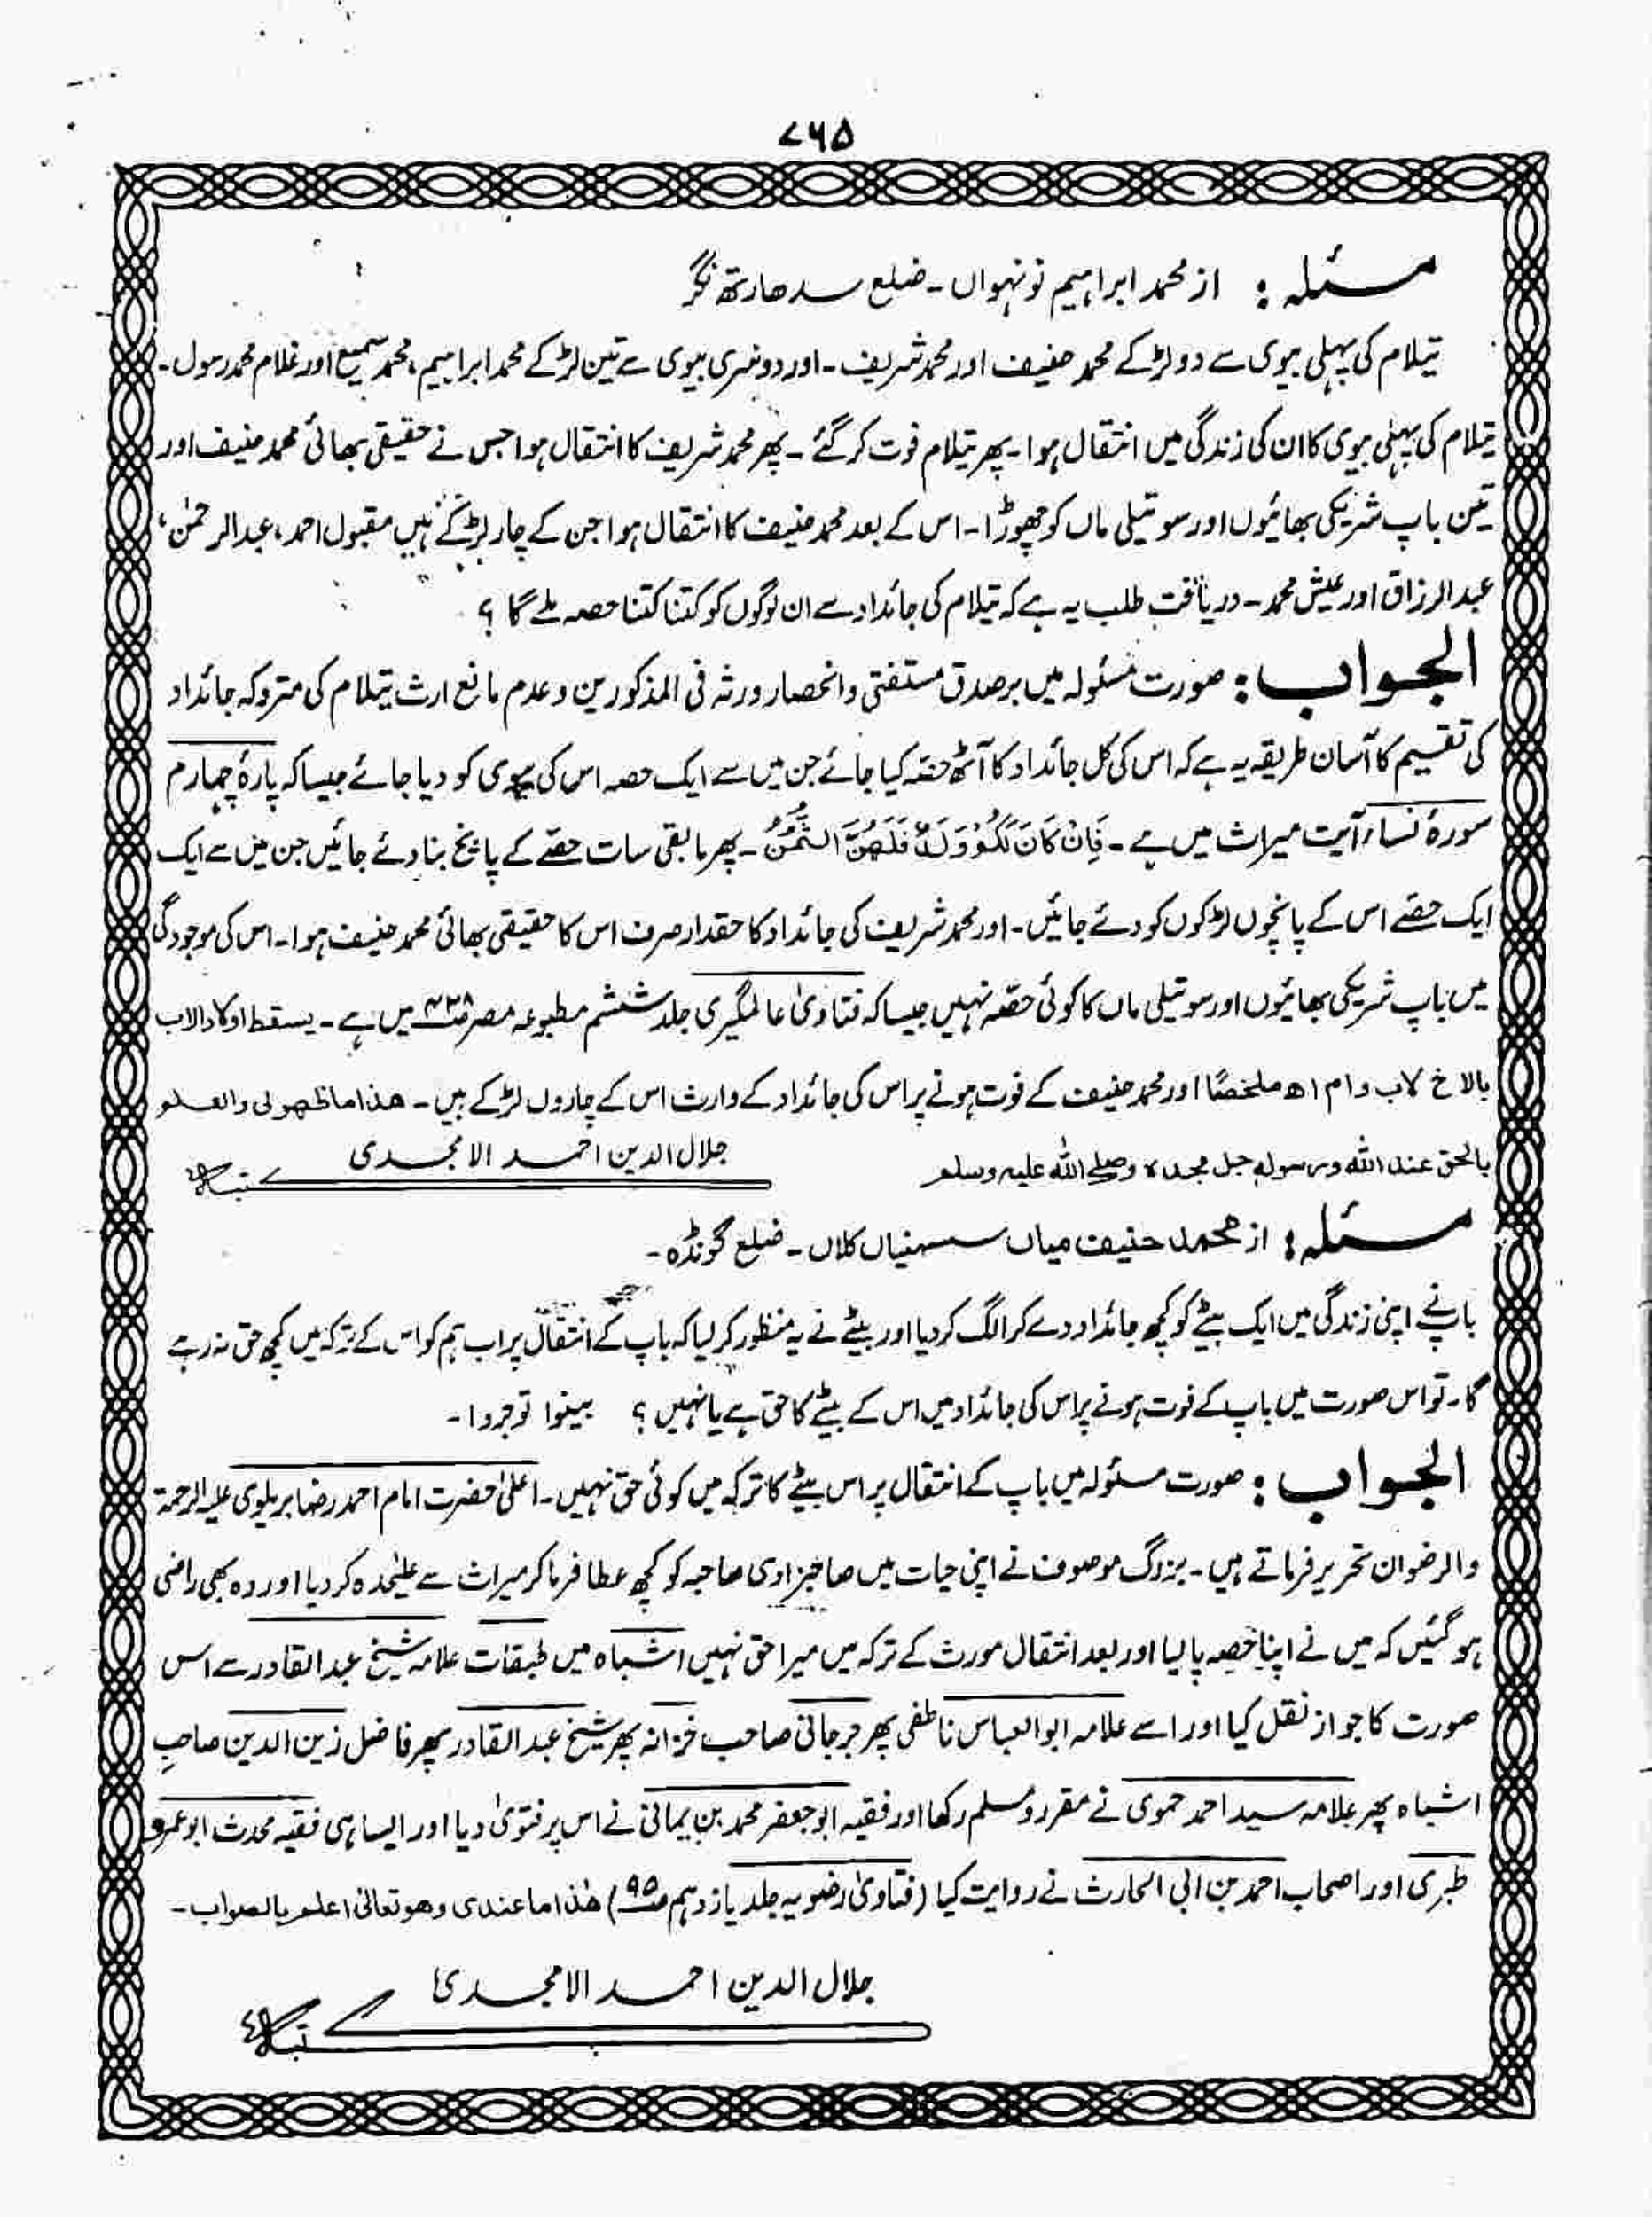 ۷۶۵
مسئلہ: از محمد ابراہیم نونہواں۔ ضلع سدھارتھ نگر
تیلام کی پہلی بیوی سے دو لڑکے محمد حنیف اور محمد شریف۔ اور دوسری بیوی سے تین لڑکے محمد ابراہیم، محمد سمیع اور غلام محمد رسول۔
تیلام کی پہلی بیوی کا ان کی زندگی میں انتقال ہوا۔ پھر تیلام فوت کر گئے۔ پھر محمد شریف کا انتقال ہوا جس نے حقیقی بھائی محمد حنیف اور
تین باپ شریکی بھائیوں اور سوتیلی ماں کو چھوڑا۔ اس کے بعد محمد حنیف کا انتقال ہوا جن کے چار لڑکے ہیں مقبول احمد، عبدالرحمٰن،
عبدالرزاق اور عیش محمد۔ دریافت طلب یہ ہے کہ تیلام کی جائداد سے ان لوگوں کو کتنا کتنا حصہ ملے گا؟
الجواب: صورت مسئولہ میں برصدق مستفتی وانحصار ورثہ فی المذکورین وعدم مانع ارث تیلام کی متروکہ جائداد
کی تقسیم کا آسان طریقہ یہ ہے کہ اس کی کل جائداد کا آٹھ حصّہ کیا جائے جن میں سے ایک حصہ اس کی بیوی کو دیا جائے جیسا کہ پارۂ چہارم
سورۂ نساء آیت میراث میں ہے۔ فَاِنْ كَانَ لَكُمْ وَلَدٌ فَلَهُنَّ الثُّمُنُ۔ پھر مابقی سات حصّے کے پانچ بنا دئے جائیں جن میں سے ایک
ایک حصّے اس کے پانچوں لڑکوں کو دئے جائیں۔ اور محمد شریف کی جائداد کا حقدار صرف اس کا حقیقی بھائی محمد حنیف ہوا۔ اس کی موجودگی
میں باپ شریکی بھائیوں اور سوتیلی ماں کا کوئی حصّہ نہیں جیسا کہ فتاویٰ عالمگیری جلد ششم مطبوعہ مصر ص۴۳۸ میں ہے۔ یسقط اولاد الاب
بالاخ لاب وام اھ ملخصًا اور محمد حنیف کے فوت ہونے پر اس کی جائداد کے وارث اس کے چاروں لڑکے ہیں۔ ھذا ما ظھر لی والعلم
بالحق عند اللہ ورسولہ جل مجدہ وصلے اللہ علیہ وسلم
جلال الدین احمد الامجدی
کتبہ
مسئلہ: از محمد حنیف میاں سسہنیاں کلاں۔ ضلع گونڈہ۔
باپ نے اپنی زندگی میں ایک بیٹے کو کچھ جائداد دے کر الگ کر دیا اور بیٹے نے یہ منظور کر لیا کہ باپ کے انتقال پر اب ہم کو اس کے ترکہ میں کچھ حق نہ رہے
گا۔ تو اس صورت میں باپ کے فوت ہونے پر اس کی جائداد میں اس کے بیٹے کا حق ہے یا نہیں؟ بینوا توجروا۔
الجواب: صورت مسئولہ میں باپ کے انتقال پر اس بیٹے کا ترکہ میں کوئی حق نہیں۔ اعلیٰ حضرت امام احمد رضا بریلوی علیہ الرحمۃ
والرضوان تحریر فرماتے ہیں۔ بزرگ موصوف نے اپنی حیات میں صاحبزادی صاحبہ کو کچھ عطا فرما کر میراث سے علیٰحدہ کر دیا اور وہ بھی راضی
ہو گئیں کہ میں نے اپنا حصہ پا لیا اور بعد انتقال مورث کے ترکہ میں میرا حق نہیں اشباہ میں طبقات علامہ شیخ عبدالقادر سے اس
صورت کا جواز نقل کیا اور اسے علامہ ابوالعباس ناطفی پھر جرجانی صاحب خزانہ پھر شیخ عبدالقادر پھر فاضل زین الدین صاحبِ
اشباہ پھر علامہ سید احمد حموی نے مقرر و مسلم رکھا اور فقیہ ابوجعفر محمد بن یمانی نے اس پر فتویٰ دیا اور ایسا ہی فقیہ محدث ابوعمرو
طبری اور اصحاب احمد بن ابی الحارث نے روایت کیا (فتاویٰ رضویہ جلد یازدہم ص۹۵) ھٰذا ما عندی وھو تعالیٰ اعلم بالصواب۔
جلال الدین احمد الامجدی
کتبہ